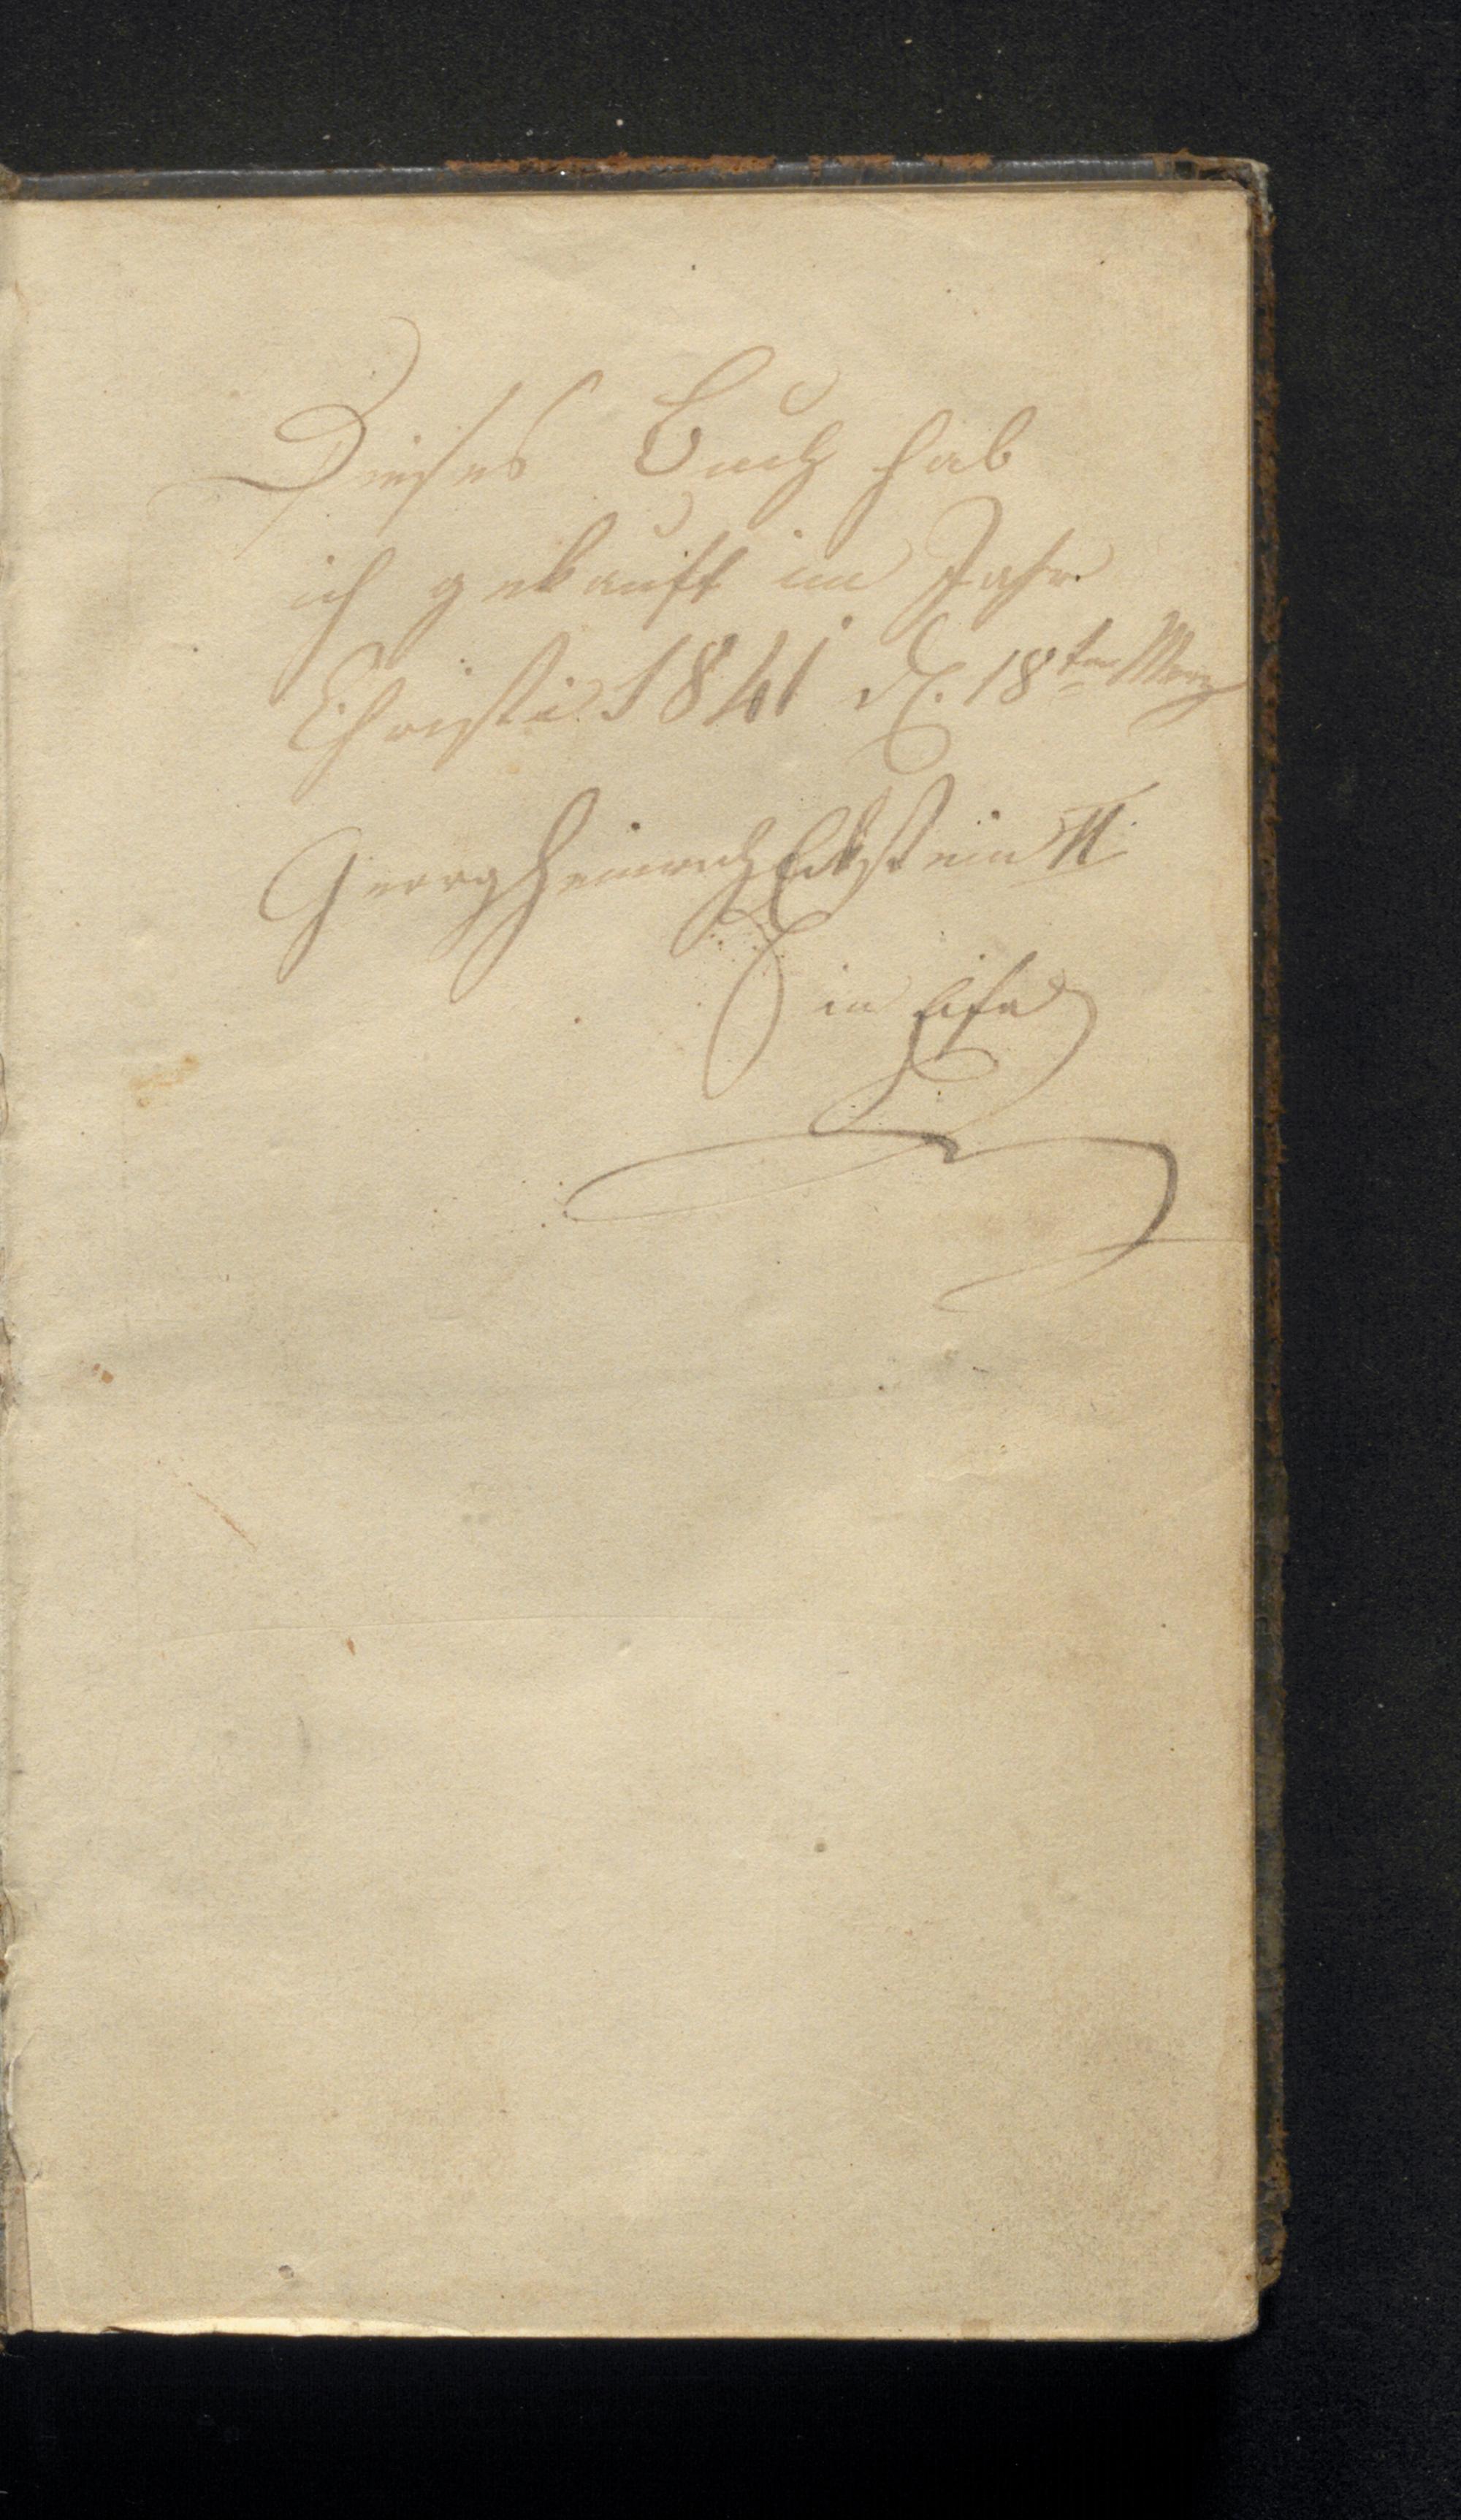 Dieses Buch hab
ich gekauft im Jahr
Christi 1841 d. 18ten Merz
Georg Heinrich Eckstein II
in Eifa